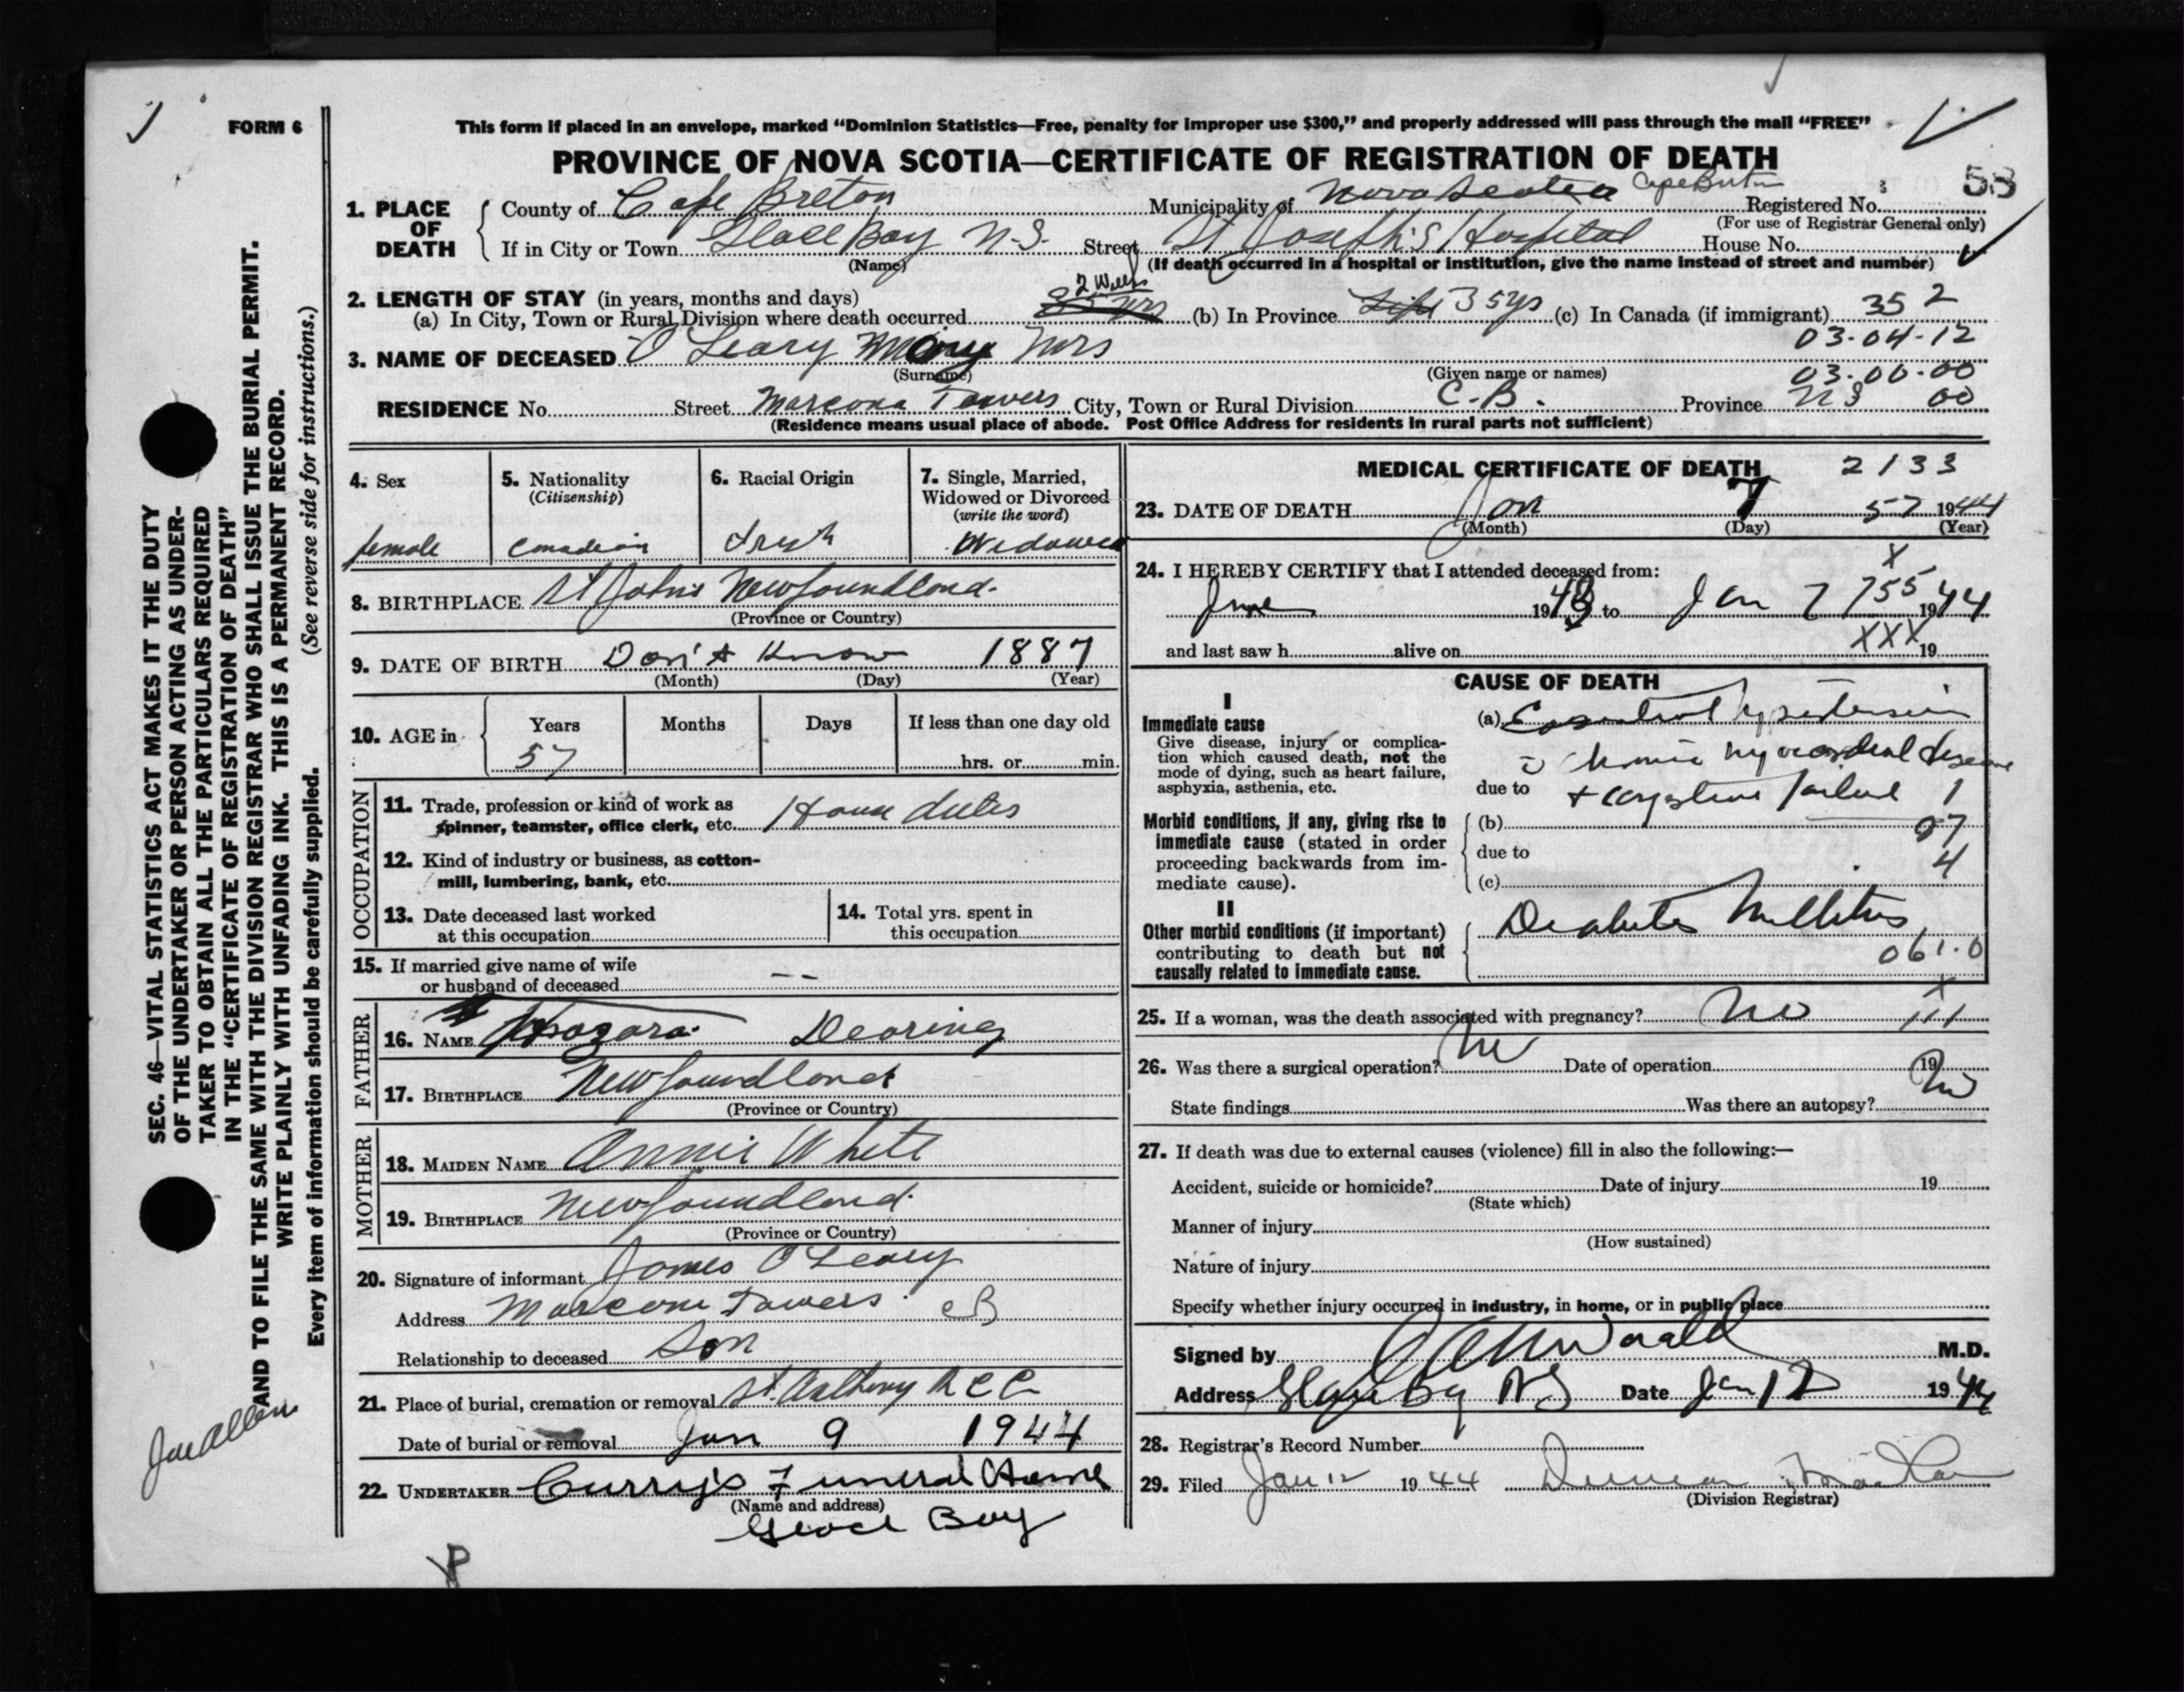 FORM 6
This form if placed in an envelope, marked “Dominion Statistics—Free, penalty for improper use $300,” and properly addressed will pass through the mail “FREE”
PROVINCE OF NOVA SCOTIA—CERTIFICATE OF REGISTRATION OF DEATH
58
1. PLACE OF DEATH
County of Cape Breton Municipality of Nova Scotia Cape Breton Registered No.
(For use of Registrar General only)
If in City or Town Glace Bay N.S. Street St Joseph's Hospital House No.
(Name) (If death occurred in a hospital or institution, give the name instead of street and number)
2. LENGTH OF STAY (in years, months and days)
(a) In City, Town or Rural Division where death occurred 35 yrs 2 Weeks (b) In Province Life 35 ys (c) In Canada (if immigrant) 35 2
03-04-12
3. NAME OF DECEASED O'Leary Mary Mrs
(Surname) (Given name or names)
03-00-00
RESIDENCE No. Street Marcona Towers City, Town or Rural Division C.B. Province NS 00
(Residence means usual place of abode. Post Office Address for residents in rural parts not sufficient)
4. Sex
female
5. Nationality
(Citizenship)
Canadian
6. Racial Origin
Irish
7. Single, Married,
Widowed or Divorced
(write the word)
Widowed
8. BIRTHPLACE St John's Newfoundland.
(Province or Country)
9. DATE OF BIRTH Don't Know 1887
(Month) (Day) (Year)
10. AGE in Years Months Days If less than one day old
57 hrs. or min.
OCCUPATION
11. Trade, profession or kind of work as
spinner, teamster, office clerk, etc. House duties
12. Kind of industry or business, as cotton-
mill, lumbering, bank, etc.
13. Date deceased last worked
at this occupation
14. Total yrs. spent in
this occupation
15. If married give name of wife
or husband of deceased — —
FATHER
16. NAME Dearing
17. BIRTHPLACE Newfoundland
(Province or Country)
MOTHER
18. MAIDEN NAME Annie White
19. BIRTHPLACE Newfoundland.
(Province or Country)
20. Signature of informant James O'Leary
Address Marconi Towers CB
Relationship to deceased Son
21. Place of burial, cremation or removal St. Anthony R C C
Date of burial or removal Jan 9 1944
22. UNDERTAKER Curry's Funeral Home
(Name and address)
Glace Bay
MEDICAL CERTIFICATE OF DEATH 2133
23. DATE OF DEATH Jan 7 57 1944
(Month) (Day) (Year)
24. I HEREBY CERTIFY that I attended deceased from:
X
June 1943 to Jan 7 755 1944
and last saw h alive on XXX 19
CAUSE OF DEATH
I
Immediate cause
Give disease, injury or complica-
tion which caused death, not the
mode of dying, such as heart failure,
asphyxia, asthenia, etc.
(a) Essential hypertension
c Chronic myocardial disease
due to + congestive failure 1
Morbid conditions, if any, giving rise to
immediate cause (stated in order
proceeding backwards from im-
mediate cause).
(b) 97
due to 4
(c)
II
Other morbid conditions (if important)
contributing to death but not
causally related to immediate cause.
Diabetes Mellitus
061.0
X
25. If a woman, was the death associated with pregnancy? No 111
26. Was there a surgical operation? No Date of operation 19
State findings Was there an autopsy? No
27. If death was due to external causes (violence) fill in also the following:—
Accident, suicide or homicide? Date of injury 19
(State which)
Manner of injury
(How sustained)
Nature of injury
Specify whether injury occurred in industry, in home, or in public place
Signed by M.D.
Address Glace Bay NS Date Jan 12 1944
28. Registrar's Record Number
29. Filed Jan 12 1944 Duncan
(Division Registrar)
SEC. 46—VITAL STATISTICS ACT MAKES IT THE DUTY
OF THE UNDERTAKER OR PERSON ACTING AS UNDER-
TAKER TO OBTAIN ALL THE PARTICULARS REQUIRED
IN THE “CERTIFICATE OF REGISTRATION OF DEATH”
AND TO FILE THE SAME WITH THE DIVISION REGISTRAR WHO SHALL ISSUE THE BURIAL PERMIT.
WRITE PLAINLY WITH UNFADING INK. THIS IS A PERMANENT RECORD.
Every item of information should be carefully supplied. (See reverse side for instructions.)
Joe Allen
P